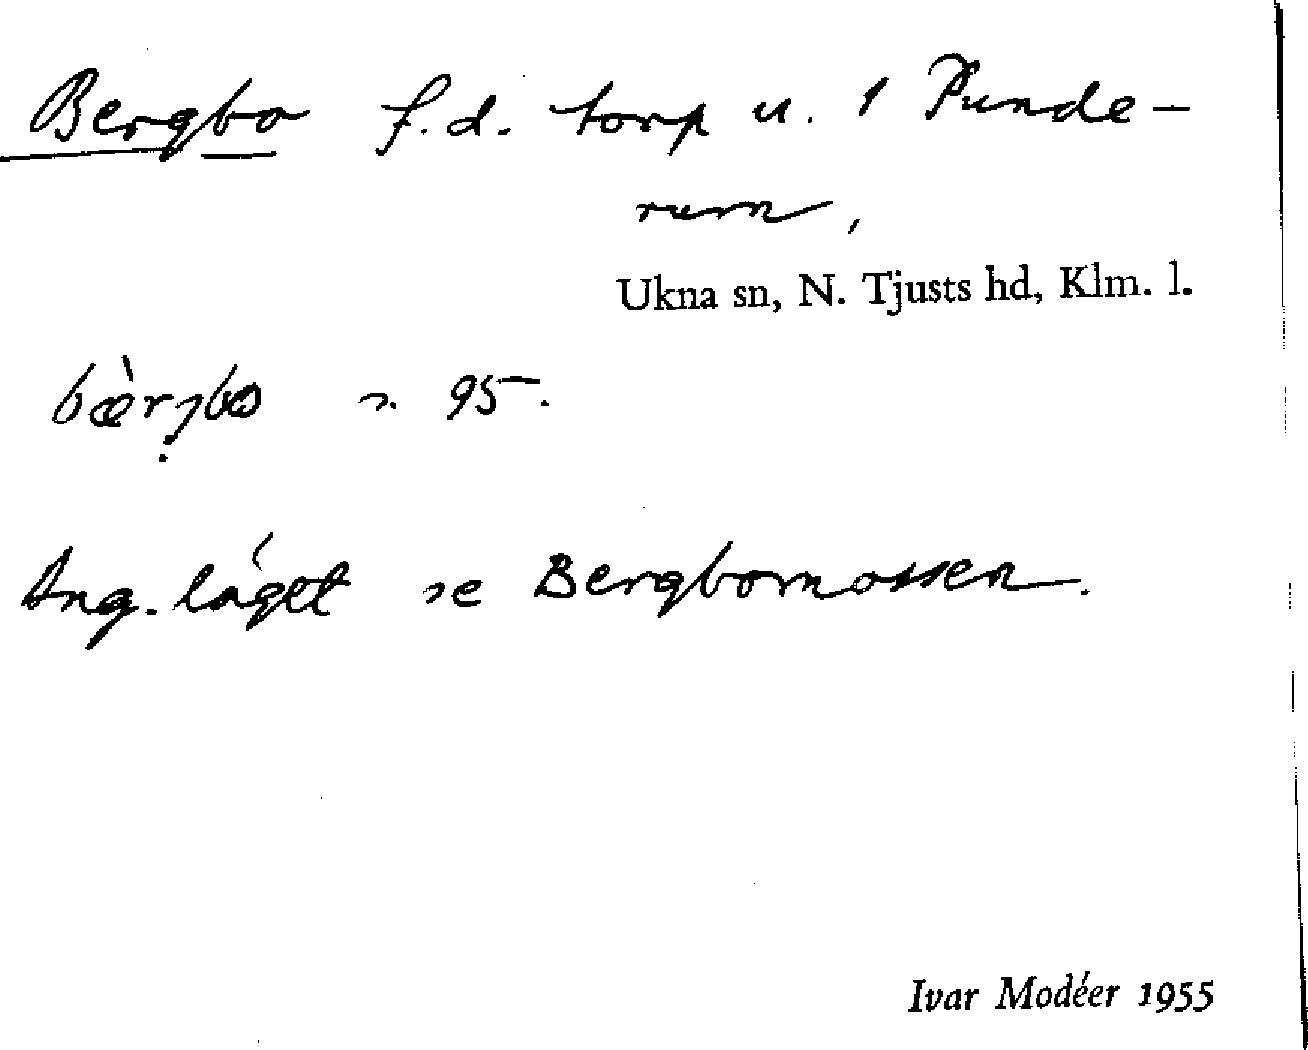 Bergbo f.d. torp u. 1 Punde-
rum,
Ukna sn, N. Tjusts hd, Klm. l.
bæ̀rjbo s. 95.
Ang. läget se Bergbomossen.
Ivar Modéer 1955